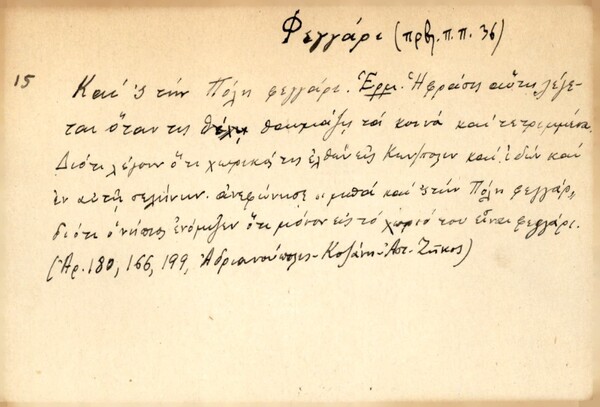 Φεγγάρι (πρβλ. π.π. 36)
15 Και 'ς την Πόλη φεγγάρι. Ἑρμ. Ἡ φράσις αὕτη λέγε-
ται ὅταν τις θαυμάζῃ τά κοινά καί τετριμμένα.
Διότι λέγουν ὅτι χωρικός τις ἐλθών εἰς Κων/πολιν καί ἰδών καί
ἐν αὐτῇ σελήνην ἀνεφώνησε „μπά καί 'ς τήν Πόλη φεγγάρ„
διότι ὁ νήπιος ἐνόμιζεν ὅτι μόνον εἰς τό χωριό του εἶναι φεγγάρι.
(Ἀρ. 180, 166, 199, Ἀδριανούπολις - Κοζάνη - Ἀπ. Ζῆκος)